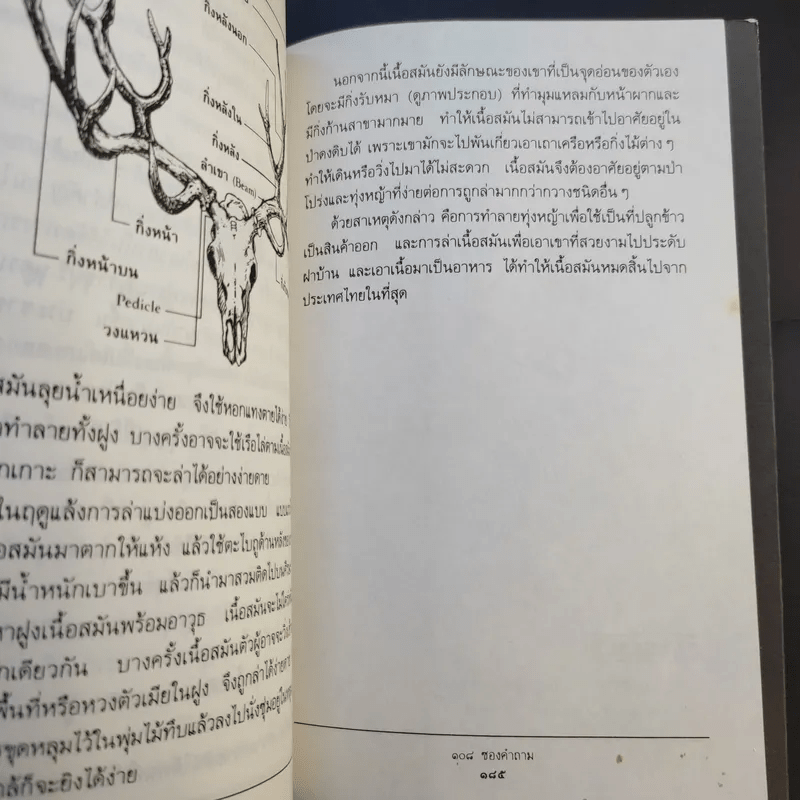 กิ่งหลังนอก
กิ่งหลังใน
กิ่งหลัง
ลำเขา (Beam)
กิ่งหน้า
กิ่งหน้าบน
Pedicle
วงแหวน
สมันลุยน้ำเหนื่อยง่าย จึงใช้หอกแทงตายได้ง่าย
ทำลายทั้งฝูง บางครั้งอาจจะใช้เรือไล่ตามเนื้อ
กเกาะ ก็สามารถจะล่าได้อย่างง่ายดาย
ในฤดูแล้งการล่าแบ่งออกเป็นสองแบบ
อสมันมาตากให้แห้ง แล้วใช้ตะไบถูด้านหลัง
มีน้ำหนักเบาขึ้น แล้วก็นำมาสวมติดไปบน
าฝูงเนื้อสมันพร้อมอาวุธ เนื้อสมันจะไม่
กเดียวกัน บางครั้งเนื้อสมันตัวผู้อาจจะ
พื้นที่หรือหวงตัวเมียในฝูง จึงถูกล่าได้ง่ายดาย
ขุดหลุมไว้ในพุ่มไม้ทึบแล้วลงไปนั่งซุ่มอยู่ใน
ใกล้ก็จะยิงได้ง่าย
นอกจากนี้เนื้อสมันยังมีลักษณะของเขาที่เป็นจุดอ่อนของตัวเอง
โดยจะมีกิ่งรับหมา (ดูภาพประกอบ) ที่ทำมุมแหลมกับหน้าผากและ
มีกิ่งก้านสาขามากมาย ทำให้เนื้อสมันไม่สามารถเข้าไปอาศัยอยู่ใน
ป่าดงดิบได้ เพราะเขามักจะไปพันเกี่ยวเอาเถาเครือหรือกิ่งไม้ต่าง ๆ
ทำให้เดินหรือวิ่งไปมาได้ไม่สะดวก เนื้อสมันจึงต้องอาศัยอยู่ตามป่า
โปร่งและทุ่งหญ้าที่ง่ายต่อการถูกล่ามากกว่ากวางชนิดอื่น ๆ
ด้วยสาเหตุดังกล่าว คือการทำลายทุ่งหญ้าเพื่อใช้เป็นที่ปลูกข้าว
เป็นสินค้าออก และการล่าเนื้อสมันเพื่อเอาเขาที่สวยงามไปประดับ
ฝาบ้าน และเอาเนื้อมาเป็นอาหาร ได้ทำให้เนื้อสมันหมดสิ้นไปจาก
ประเทศไทยในที่สุด
๑๐๘ ซองคำถาม
๑๘๕